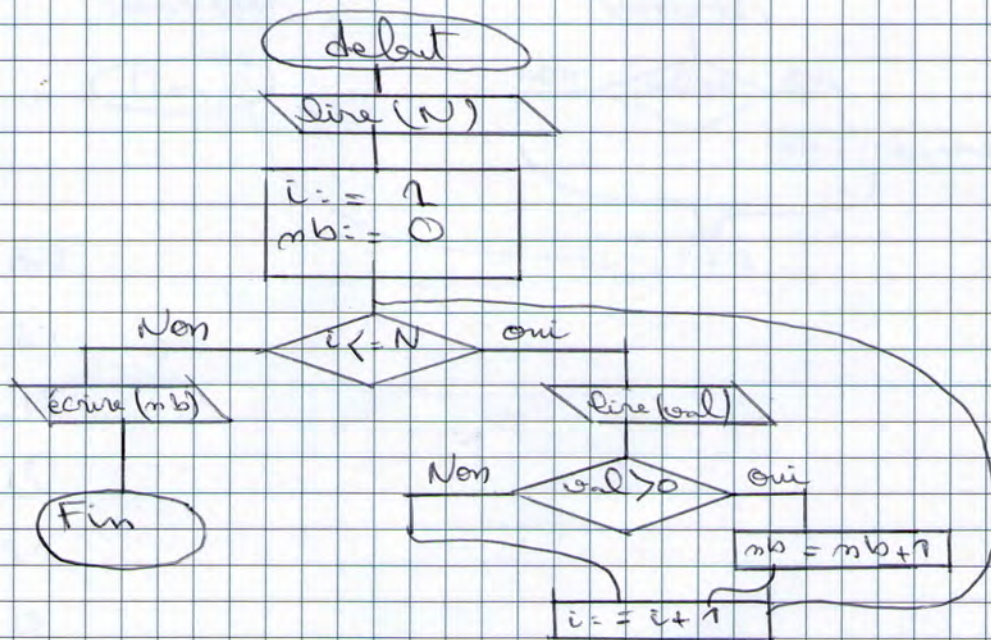 debut
lire (N)
i := 1
nb := 0
Non
i <= N
oui
écrire (nb)
lire (val)
Non
val > 0
oui
Fin
nb = nb + 1
i := i + 1